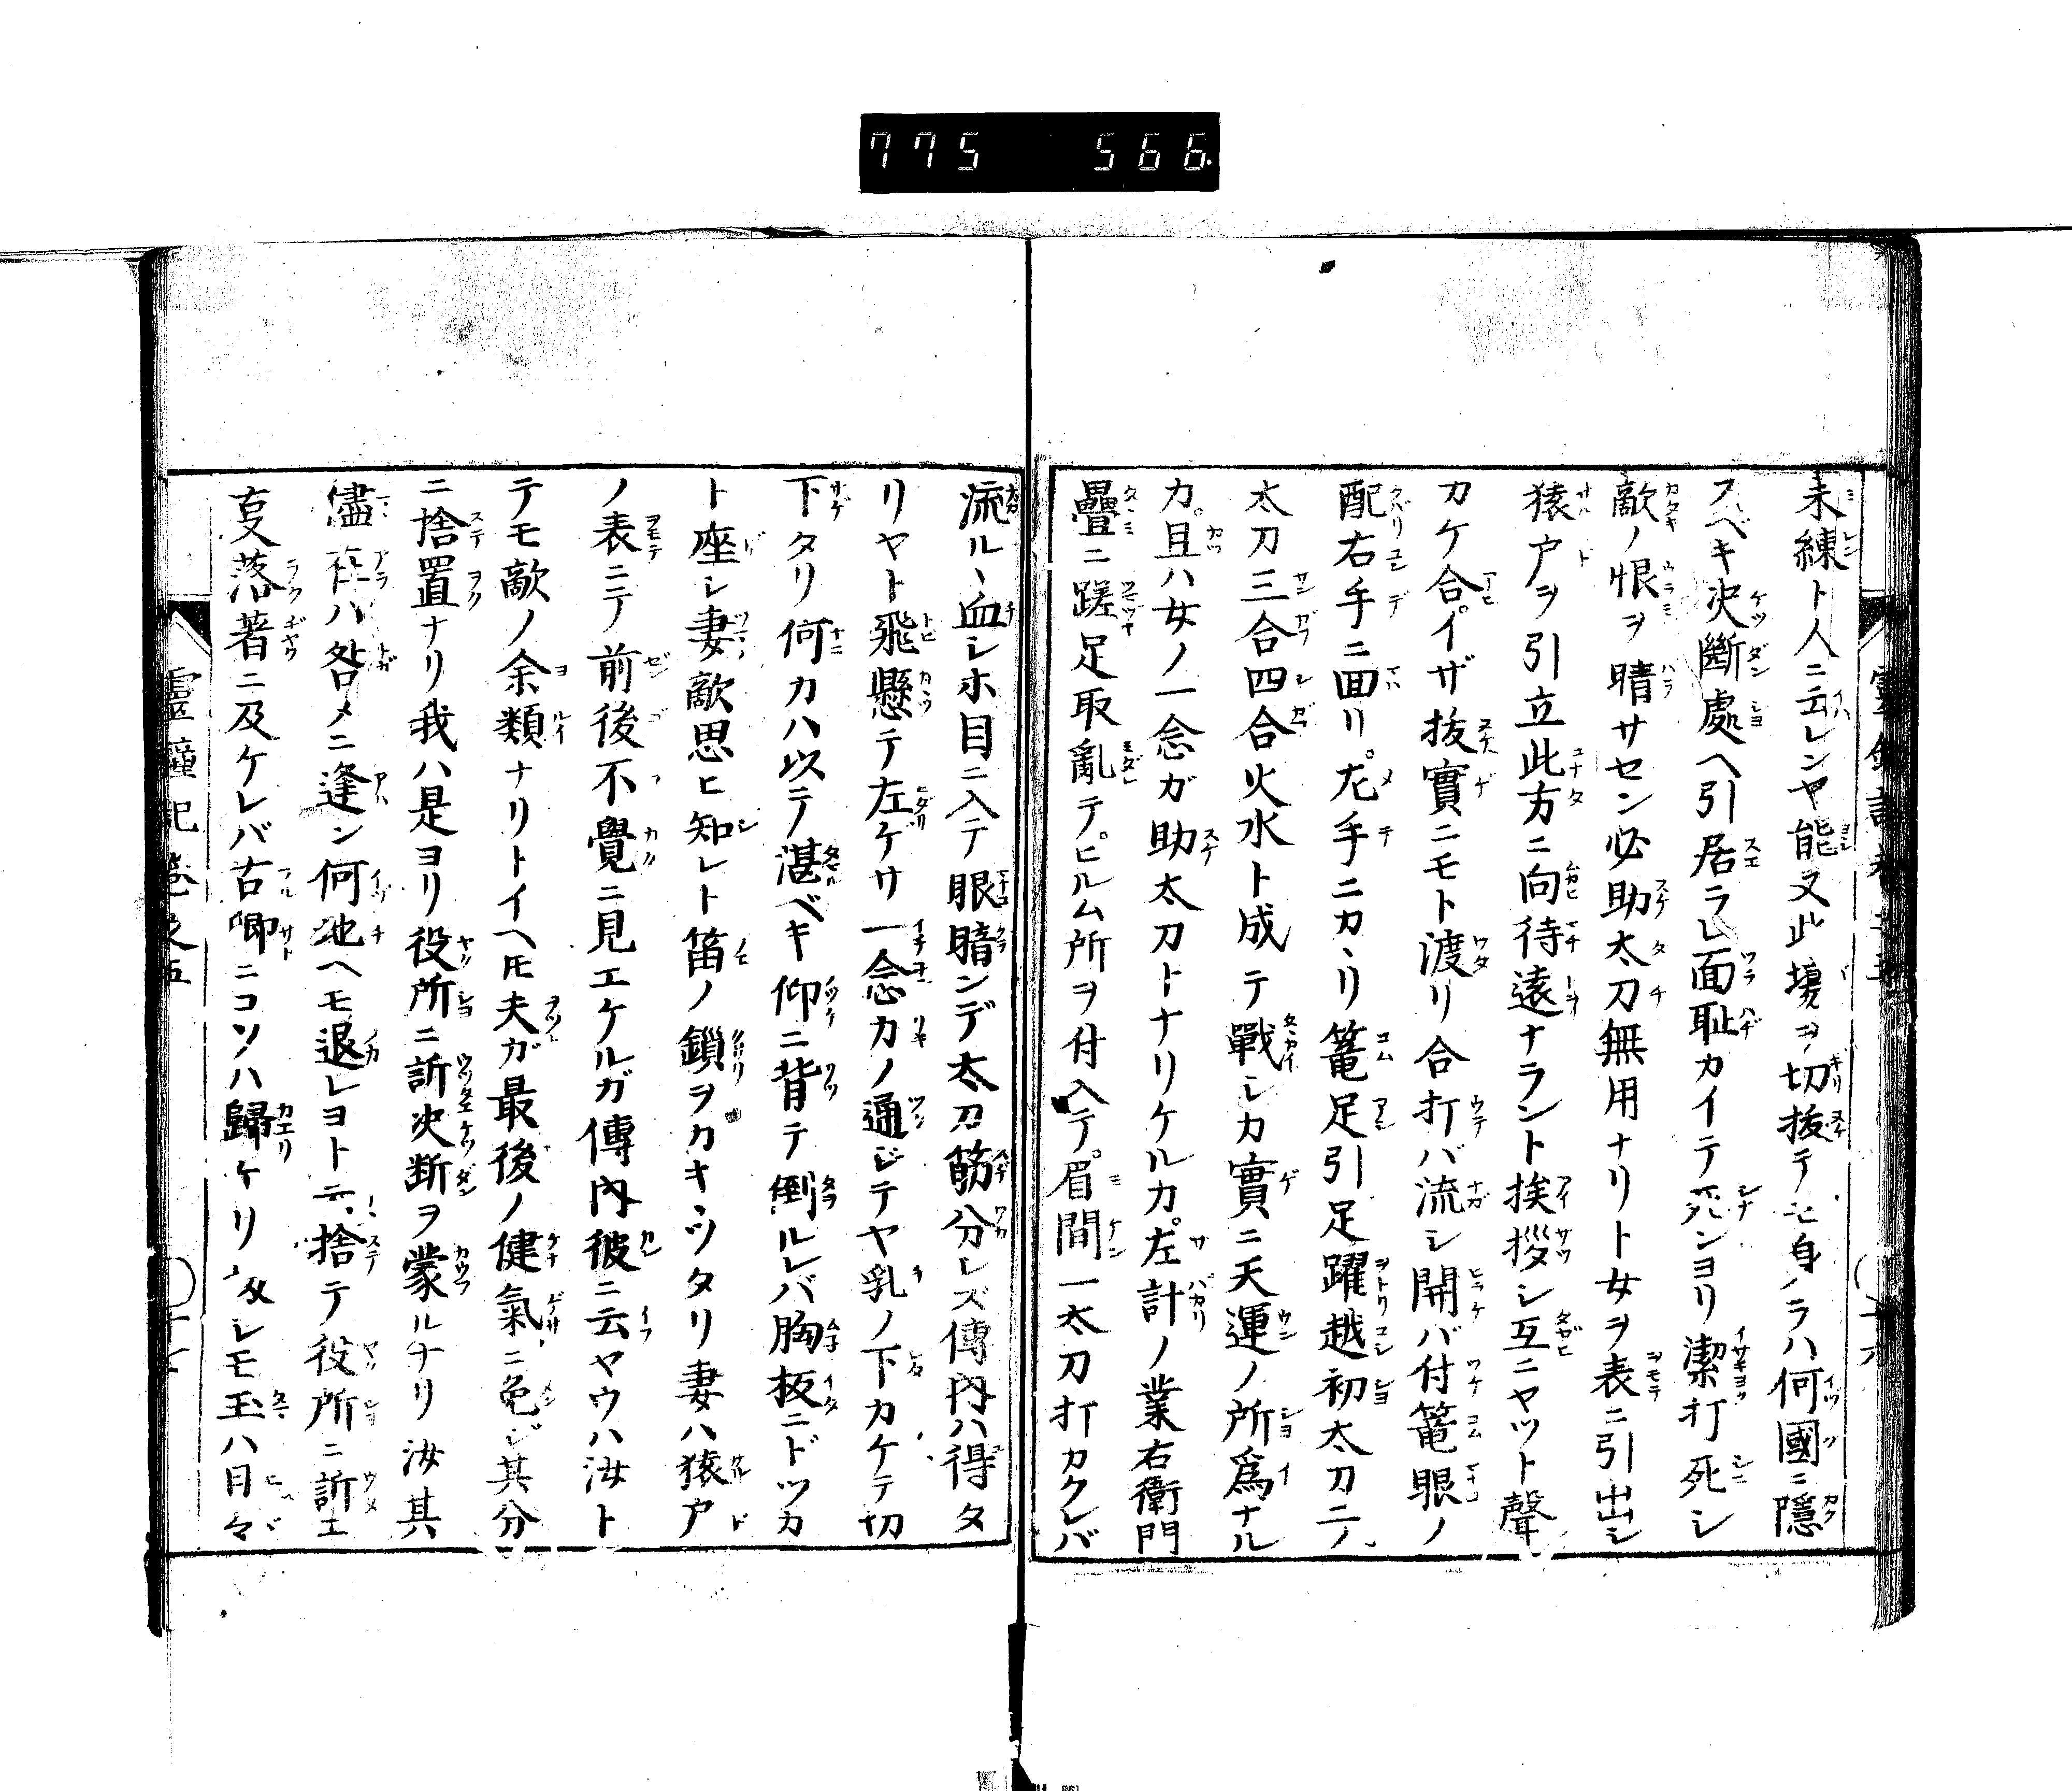 775 566.
未練ト人ニ云レンヤ能又此場ヲ切抜テモ身ノラハ何國ニ隱
スベキ决斷處ヘ引居ラレ面耻カイテ死ンヨリ潔打死シ
敵ノ恨ヲ晴サセン必助太刀無用ナリト女ヲ表ニ引出シ
猿戸ヲ引立此方ニ向待遠ナラント挨拶シ互ニヤツト聲
カケ合イザ抜實ニモト渡リ合打バ流シ開バ付篭眼ノ
配右手ニ面リ尤手ニカヽリ篭足引足躍越初太刀二ノ
太刀三合四合火水ト成テ戰シカ實ニ天運ノ所爲ナル
カ且ハ女ノ一念ガ助太刀トナリケルカ左計ノ業右衛門
疊ニ蹉足取亂テヒルム所ヲ付入テ眉間一太刀打カクレバ
流ルヽ血シホ目ニ入テ眼暗ンデ太刀筋分レズ傳内ハ得タ
リヤト飛懸テ左ケサ一念カノ通ジテヤ乳ノ下カケテ切
下タリ何カハ以テ湛ベキ仰ニ背テ倒ルレバ胸板ニドツカ
ト座シ妻敵思ヒ知レト笛ノ鎖ヲカキヽツタリ妻ハ猿戸
ノ表ニテ前後不覺ニ見エケルガ傳内彼ニ云ヤウハ汝ト
テモ敵ノ余類ナリトイヘ𪜈夫ガ最後ノ健氣ニ免ジ其分
ニ捨置ナリ我ハ是ヨリ役所ニ訴决断ヲ蒙ルナリ汝其
儘在ハ咎メニ逢ン何地ヘモ退レヨト云捨テ役所ニ訴エ
叓落著ニ及ケレバ古郷ニコソハ歸ケリ
シモ玉ハ日々
靈鐘記卷之五